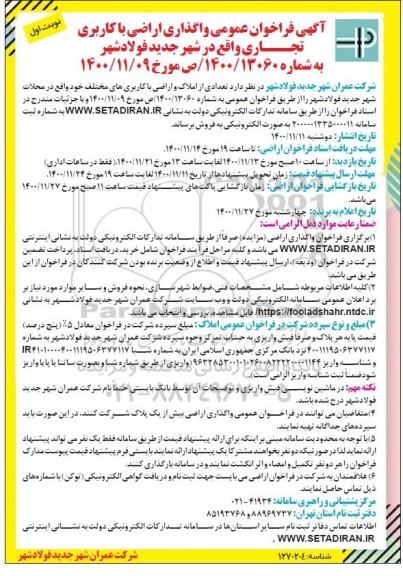 نوبت اول
آگهی فراخوان عمومی واگذاری اراضی با کاربری
تجـــاری واقع در شهر جدید فولادشهر
به شماره ۱۴۰۰/۱۳۰۶۰/ص مورخ ۱۴۰۰/۱۱/۰۹
شرکت عمران شهر جدید فولادشهر در نظر دارد تعدادی از املاک و اراضی با کاربری های مختلف خود واقع در محلات
شهر جدید فولادشهر را از طریق فراخوان عمومی به شماره ۱۴۰۰/۱۳۰۶۰/ص مورخ ۱۴۰۰/۱۱/۰۹ و با جزئیات مندرج در
اسناد فراخوان را از طریق سامانه تدارکات الکترونیکی دولت به نشانی WWW.SETADIRAN.IR و با شماره ثبت
سامانه به صورت الکترونیکی به فروش برساند.
تاریخ انتشار: دوشنبه ۱۴۰۰/۱۱/۱۱
مهلت دریافت اسناد فراخوان اراضی: تا ساعت ۱۹ مورخ ۱۴۰۰/۱۱/۱۴.
تاریخ بازدید: از ساعت ۱۰ صبح مورخ ۱۴۰۰/۱۱/۱۳ لغایت ساعت ۱۳ مورخ ۱۴۰۰/۱۱/۲۱.(فقط در ساعات اداری)
مهلت ارسال پیشنهاد قیمت: زمان تحویل پیشنهادها از تاریخ ۱۴۰۰/۱۱/۲۱ لغایت ساعت ۱۹ مورخ ۱۴۰۰/۱۱/۲۴.
تاریخ بازگشایی فراخوان اراضی: زمان بازگشایی پاکت‌های پیشنهاد قیمت ساعت ۱۱ صبح مورخ ۱۴۰۰/۱۱/۲۷
می‌باشد.
تاریخ اعلام به برنده: چهارشنبه مورخ ۱۴۰۰/۱۱/۲۷
ضمنا رعایت موارد ذیل الزامی است:
۱)برگزاری فراخوان واگذاری اراضی (مزایده) صرفاً از طریق سامانه تدارکات الکترونیکی دولت به نشانی اینترنتی
WWW.SETADIRAN.IR می باشد و کلیه مراحل فرآیند فراخوان شامل خرید، دریافت اسناد، پرداخت تضمین
شرکت در فراخوان (ودیعه)، ارسال پیشنهاد قیمت و اطلاع از وضعیت برنده بودن شرکت کنندگان در فراخوان از این
طریق می باشد.
۲)کلیه اطلاعات مربوطه شامل مشخصات فنی، ضوابط شهرسازی، نحوه فروش و سایر موارد مورد نیاز بر
برد اعلان عمومی سامانه الکترونیکی دولت و وب سایت شرکت عمران شهر جدید فولادشهر به نشانی
https://fooladshahr.ntdc.ir/ قابل مشاهده، بررسی و انتخاب می باشد.
۳) مبلغ و نوع سپرده شرکت در فراخوان عمومی املاک: مبلغ سپرده شرکت در فراخوان معادل ۵٪ (پنج درصد)
قیمت پایه هر پلاک و صرفاً فیش واریزی به حساب تمرکز وجوه سپرده شرکت عمران شهر جدید فولادشهر به شماره
نزد بانک مرکزی جمهوری اسلامی ایران به شماره شبا
و شناسه واریز واریزی از طریق شماره شبا و بصورت ساتنا یا پایا واریز
شود(ضمنا ثبت شناسه واریز الزامی است).
نکته مهم: در ماشین نویسی فیش واریزی و توضیحات آن توسط بانک بایستی حتما نام شرکت عمران شهر جدید
فولادشهر درج شده باشد.
۴)متقاضیان می توانند در فراخوان عمومی واگذاری اراضی بیش از یک پلاک شرکت کنند، در این صورت باید
سپرده‌های جداگانه تهیه نمایند.
۵) با توجه به محدودیت سامانه مبنی بر اینکه برای ارائه پیشنهاد قیمت از طریق سامانه فقط یک نفر می تواند پیشنهاد
ارائه نماید لذا در صورتیکه دو نفر بخواهند مشترکا یک پیشنهاد ارائه نمایند بایستی فرم پیشنهاد قیمت پیوست مدارک
فراخوان را هر دو نفر تکمیل و امضاء و اثر انگشت نمایند و در سامانه بارگذاری کنند.
۶) علاقمندان به شرکت در فراخوان اراضی می بایست جهت ثبت نام و دریافت گواهی الکترونیکی (توکن) با شماره های
ذیل تماس حاصل نمایند.
مرکز پشتیبانی و راهبری سامانه: ۴۱۹۳۴-۰۲۱
دفتر ثبت نام استان تهران: ۸۸۹۶۹۷۳۷ و ۸۵۱۹۳۷۶۸
اطلاعات تماس دفاتر ثبت نام سایر استان‌ها در سامانه تدارکات الکترونیکی دولت به نشانی اینترنتی
WWW.SETADIRAN.IR .
شناسه: ۱۲۷۰۲۰۴
شرکت عمران شهر جدید فولادشهر